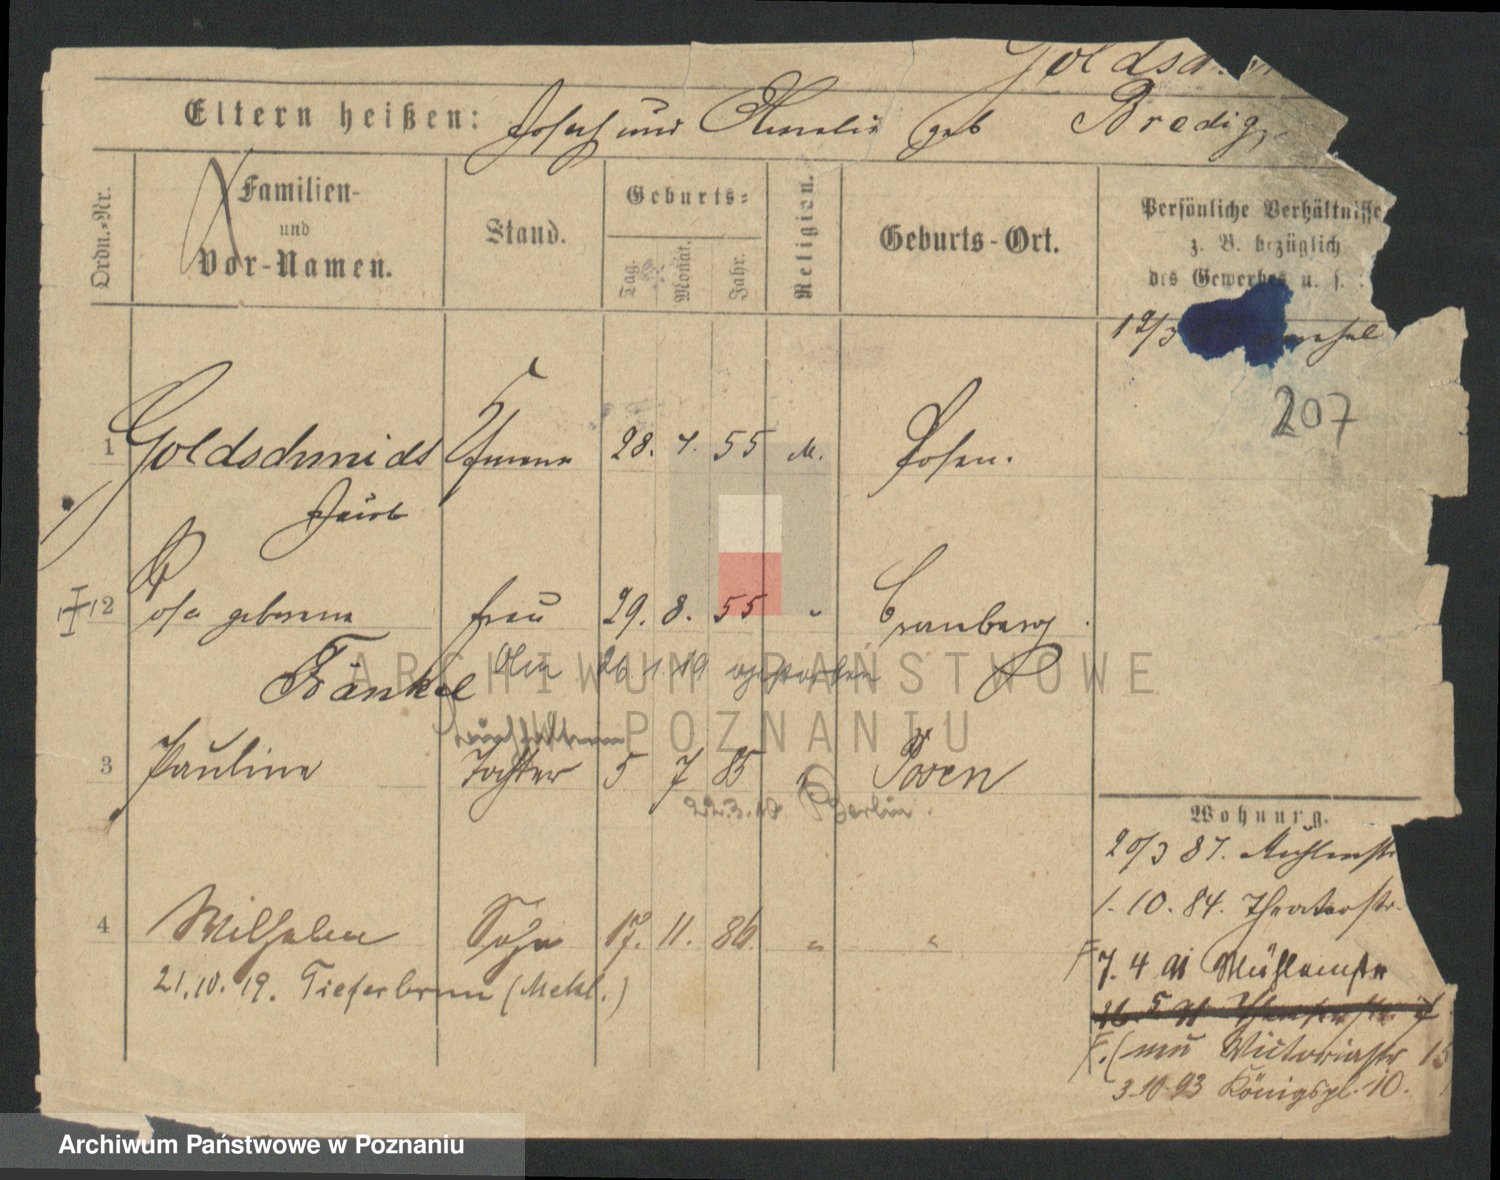 Eltern heißen: Joseph und Amalie geb Bredig,
Ordn.-Nr.
Familien-
und
Vor-Namen.
Stand.
Geburts-
Tag.
Monat.
Jahr.
Religion.
Geburts-Ort.
Persönliche Verhältnisse
z. B. bezüglich
des Gewerbes u. s.
207
1 Goldschmidt 28. 55 M. Posen.
Jacob
2 Rosa geborene Frau 29. 8. 55 "
Fränkel 26 1 19 gestorben
3 Pauline Tochter 5 7 85 " Posen
22.3.19 Berlin.
Wohnung.
20/3 87. Mühlenstr
1. 10. 84. Theaterstr.
4 Wilhelm Sohn 17. 11. 86. " "
7. 4 91 Mühlenstr
21.10.19. Tieferbrun (Mekl.)
Victoriastr 15
3.10.93 Königspl. 10.
ARCHIWUM PAŃSTWOWE
W POZNANIU
Archiwum Państwowe w Poznaniu